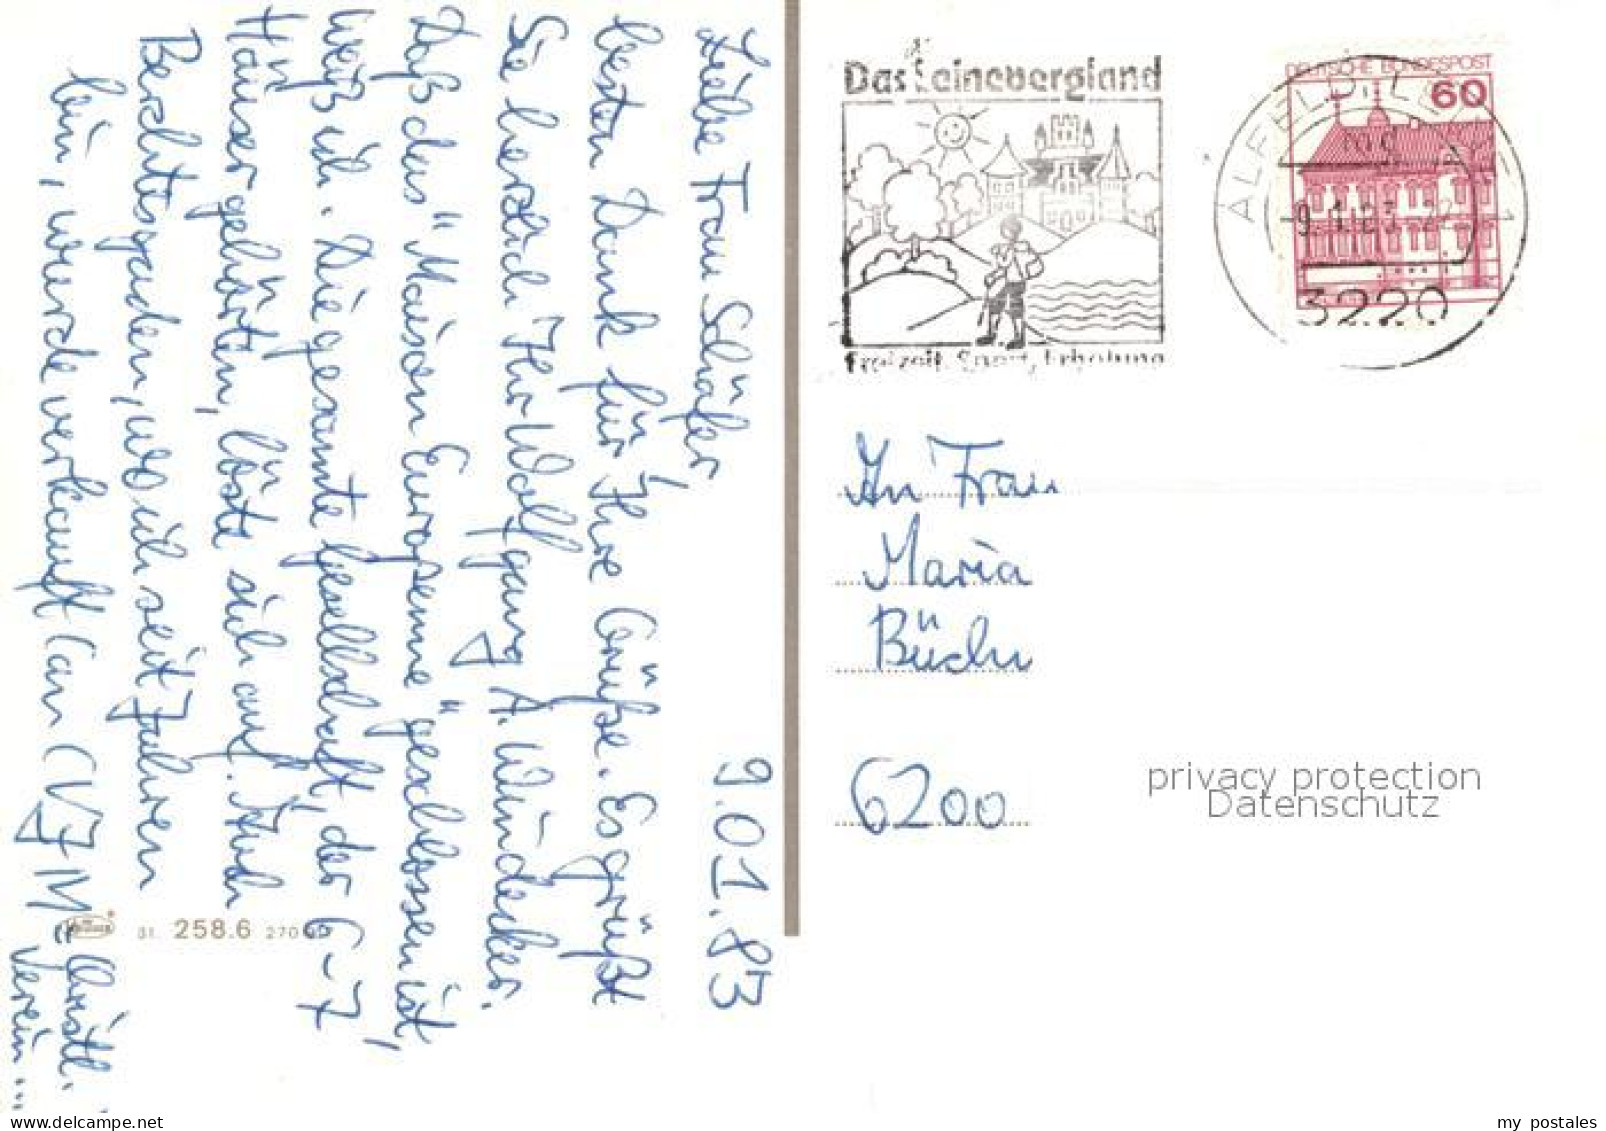 9.01.83
Liebe Frau Schäfer,
besten Dank für Ihre Grüße. Es grüßt
Sie herzlich Ihr Wolfgang A. Wündecker.
Daß das "Maison Europenne" geschlossen ist,
weiß ich. Die gesamte Gesellschaft, der 6-7
Häuser gehörten, löste sich auf. Auch
Berchtesgaden, wo ich seit Jahren
bin, wurde verkauft (an CVJM =
Christl.
Verein ...
258.6
Das Leinebergland
Freizeit, Sport, Erholung
DEUTSCHE BUNDESPOST
60
ALFELD, LEINE 1
mc
-9.1.83-22
3220
An Frau
Maria
Büchn
6200
privacy protection
Datenschutz
delcampe.net
my_postales